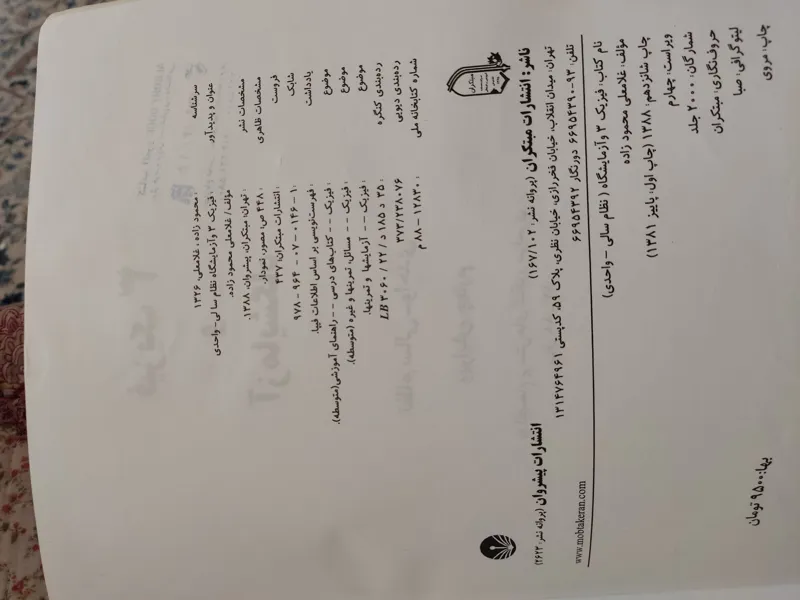 سرشناسه : محمود زاده، غلامعلی، ۱۳۲۶
عنوان و پدیدآور : فیزیک ۳ و آزمایشگاه نظام سالی- واحدی
مؤلف / غلامعلی محمود زاده.
مشخصات نشر : تهران: مبتکران، پیشروان، ۱۳۸۸.
مشخصات ظاهری : ۴۴۸ ص: مصور، نمودار.
فروست : انتشارات مبتکران؛ ۴۳۷
شابک ۹۷۸ - ۹۶۴ - ۰۷ - ۰۱۴۶ - ۱
یادداشت : فهرست‌نویسی بر اساس اطلاعات فیپا.
موضوع : فیزیک -- کتاب‌های درسی -- راهنمای آموزشی(متوسطه).
موضوع : فیزیک -- مسائل، تمرینها و غیره (متوسطه).
موضوع : فیزیک -- آزمایشها و تمرینها.
رده‌بندی کنگره : LB ۳۰۶۰ / ۲۲ / د ۱۸۵ د ۳۵
رده‌بندی دیویی ۳۷۳/۲۳۸۰۷۶
شماره کتابخانه ملی : ۱۲۸۳۰ - ۸۸ م
مبتکران
ناشر: انتشارات مبتکران (پروانه نشر: ۱۶۷/۱۰۲)
انتشارات پیشروان (پروانه نشر: ۲۶۲۳)
تهران، میدان انقلاب، خیابان فخررازی، خیابان نظری، پلاک ۵۹، کدپستی ۱۳۱۴۷۶۴۹۶۱
تلفن: ۹۳-۶۶۹۵۴۳۹۰ دورنگار ۶۶۹۵۴۳۹۲
www.mobtakeran.com
نام کتاب: فیزیک ۳ و آزمایشگاه ( نظام سالی - واحدی)
مؤلف: غلامعلی محمود زاده
چاپ شانزدهم: ۱۳۸۸ (چاپ اول: پاییز ۱۳۸۱)
ویراست: چهارم
شمارگان: ۲۰۰۰ جلد
حروف‌نگاری: مبتکران
لیتوگرافی: صبا
چاپ: مروی
بها: ۹۵۰۰ تومان